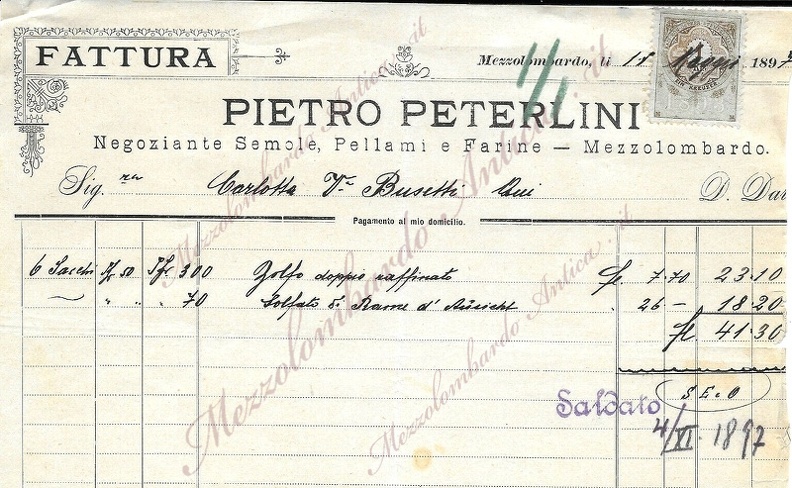 FATTURA
Mezzolombardo, li 18 Maggio 1897
PIETRO PETERLINI
Negoziante Semole, Pellami e Farine — Mezzolombardo.
Sig.ra Carlotta Va Busetti Qui D. Dar
Pagamento al mio domicilio.
6 Sacchi 50 300 Zolfo doppio raffinato fl 7.70 23.10
~ " " " 70 Solfato di Rame d' " 26 — 18.20
fl 41.30
S. E. O
Saldato
4/XI. 1897
Mezzolombardo Antica.it
Mezzolombardo Antica.it
Mezzolombardo Antica.it